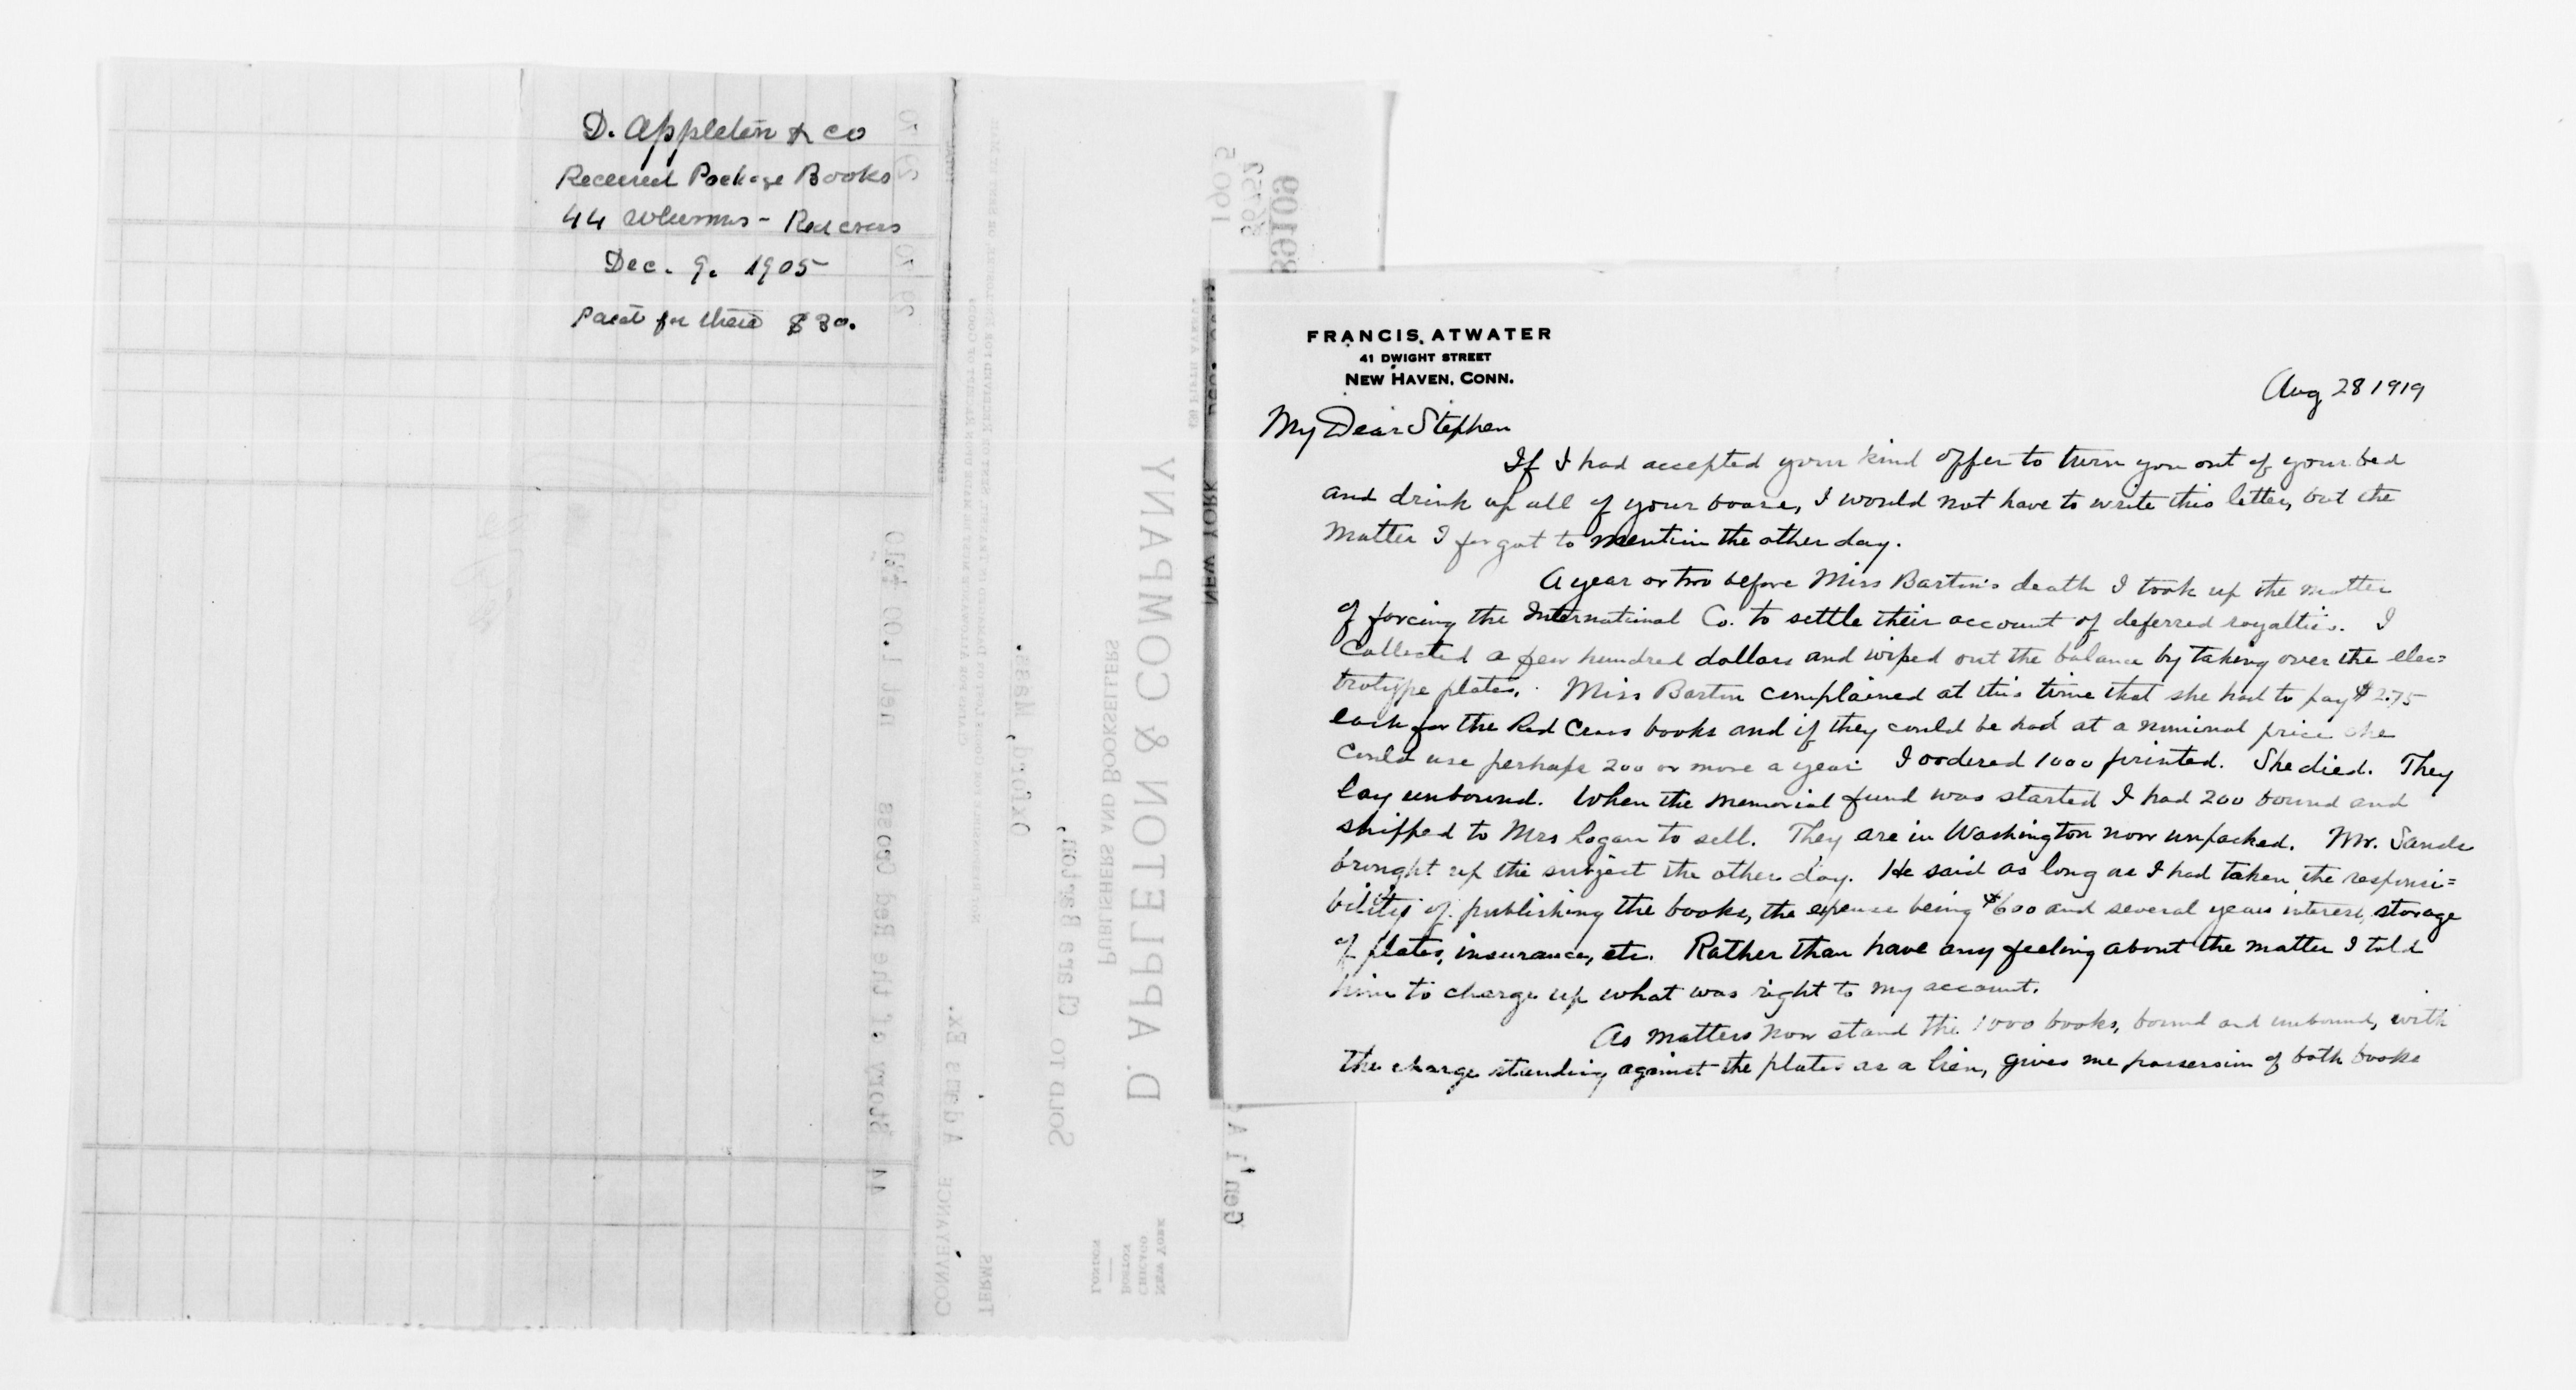 D. Appleton & Co
Received Package Books
44 Volumns - Red cross
Dec. 9. 1905
Paid for these $30.
D. APPLETON & COMPANY
PUBLISHERS AND BOOKSELLERS
NEW YORK
BOSTON
CHICAGO
LONDON
NEW YORK
SOLD TO Clara Barton,
Oxford, Mass.
TERMS
CONVEYANCE Adams Ex.
44 Story of the Red Cross net 1.00
1905
39109
Gen'l A
FRANCIS ATWATER
41 DWIGHT STREET
NEW HAVEN, CONN.
Aug 28 1919
My Dear Stephen
If I had accepted your kind offer to turn you out of your bed
and drink up all of your booze, I would not have to write this letter, but the
matter I forgot to mention the other day.
A year or two before Miss Barton's death I took up the matter
of forcing the International Co. to settle their account of deferred royalties. I
collected a few hundred dollars and wiped out the balance by taking over the elec=
trotype plates. Miss Barton complained at this time that she had to pay $2.75
each for the Red Cross books and if they could be had at a nominal price she
could use perhaps 200 or more a year I oodered 1000 printed. She died. They
lay unbound. When the memorial fund was started I had 200 bound and
shipped to Mrs Logan to sell. They are in Washington now unpacked. Mr. Sands
brought up the subject the other day. He said as long as I had taken the responsi=
bility of publishing the books, the expense being $600 and several years interest, storage
of plates, insurance, etc. Rather than have any feeling about the matter I told
him to charge up what was right to my account.
As matters now stand the 1000 books, bound and unbound, with
the charge standing against the plates as a lien, gives me possession of both books